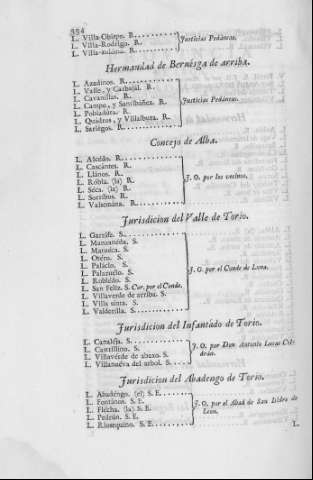 354
L. Villa-Obispo. R.
L. Villa-Rodrigo. R.
L. Villa-
Justicias Pedáneas.
Hermandad de Bernesga de arriba.
L. Azadinos. R.
L. Valle, y Carbajal. R.
L. Cavanillas. R.
L. Campo, y Santibáñez. R.
L. Pobladura. R.
L. Quadros, y Villalbura. R.
L. Sariegos. R.
Justicias Pedáneas.
Concejo de Alba.
L. Alcedo. R.
L. Cascántes. R.
L. Llános. R.
L. Robla. (la) R.
L. Séca. (la) R.
L. Sorribos. R.
L. Valsemána. R.
J. O. por los vecinos.
Jurisdicion del Valle de Torío.
L. Garrafe. S.
L. Manzanéda. S.
L. Matuéca. S.
L. Otéro. S.
L. Palácio. S.
L. Palazuelo. S.
L. Robledo. S.
L. San Feliz. S. Cur. por el Conde.
L. Villaverde de arriba. S.
L. Villa sinta. S.
L. Valderilla. S.
J. O. por el Conde de Luna.
Jurisdicion del Infantado de Torío.
L. Canaleja. S.
L. Castrillino. S.
L. Villavérde de abaxo. S.
L. Villanueva del arbol. S.
J. O. por Don Antonio Lorenzana
Jurisdicion del Abadengo de Torío.
L. Abadengo. (el) S. E.
L. Fontános. S. E.
L. Flécha. (la) S. E.
L. Pedrún. S. E.
L. Riosequino. S. E.
J. O. por el Abad de San Isidro de
Leon.
L.